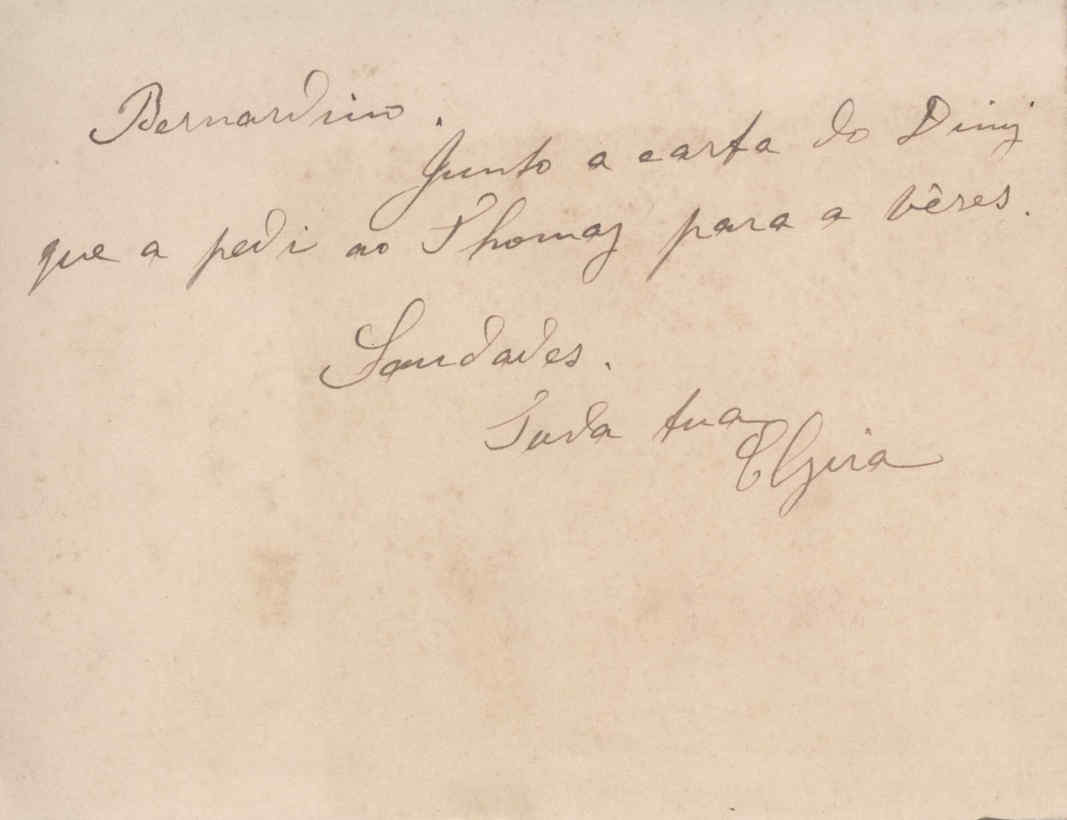 Bernardino.
Junto a carta do Diniz
que a pedi ao Thomaz para a vêres.
Saudades.
Toda tua
Elzira